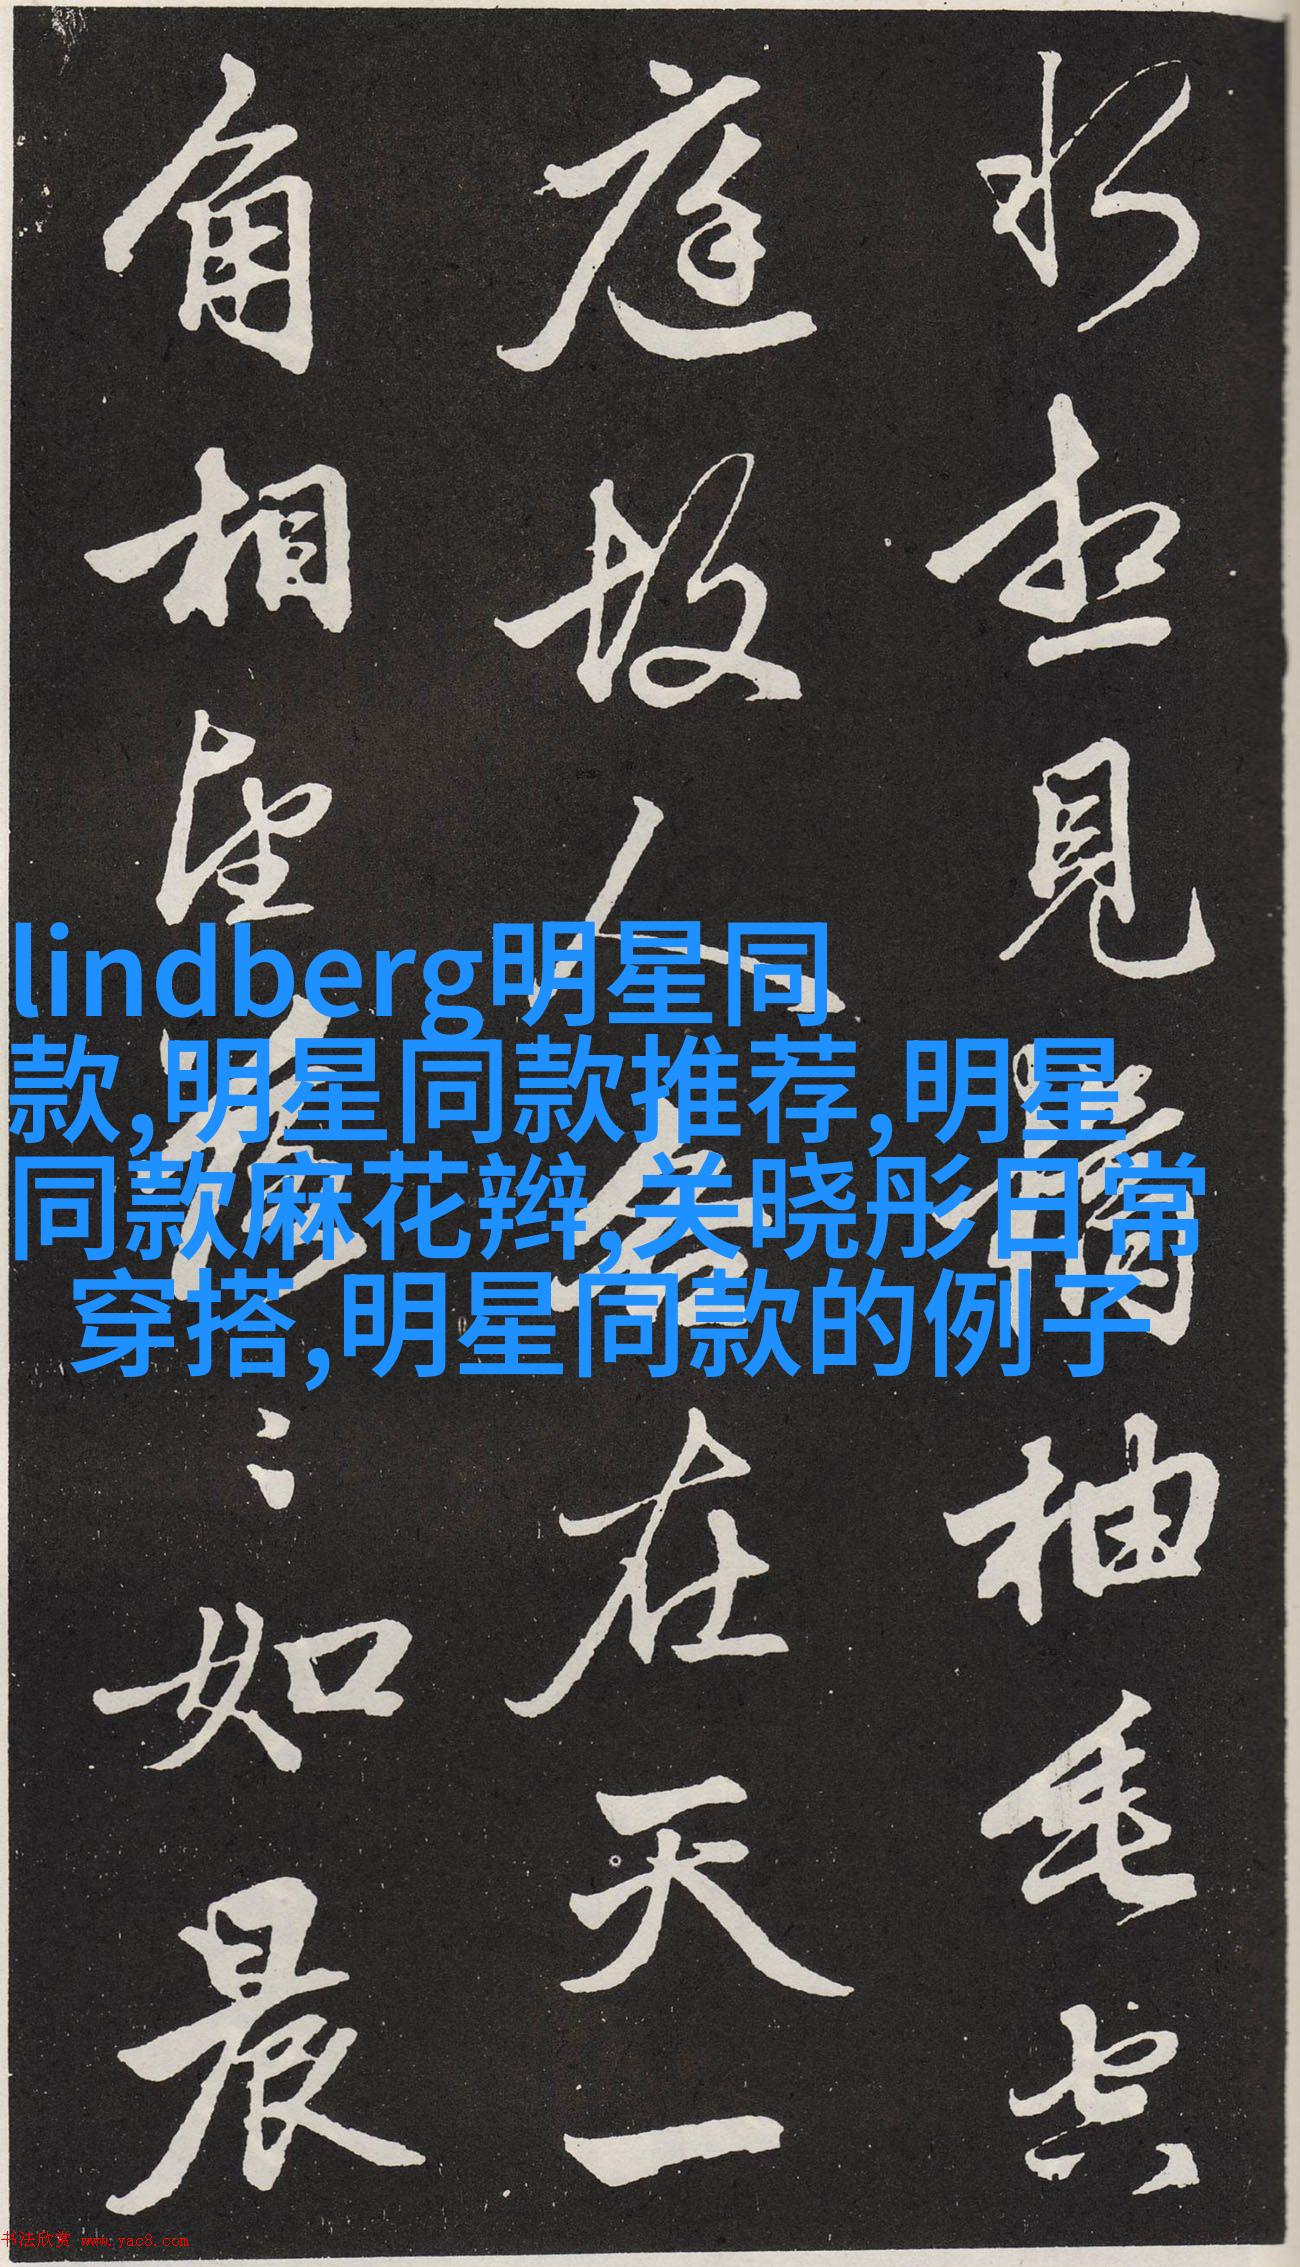 lindberg明星同
款,明星同款推荐,明星
同款麻花辫,关晓彤日常
穿搭,明星同款的例子
想見橘柚垂空
庭故人各在天一
角相望落〻如晨
书法欣赏 www.yac8.com